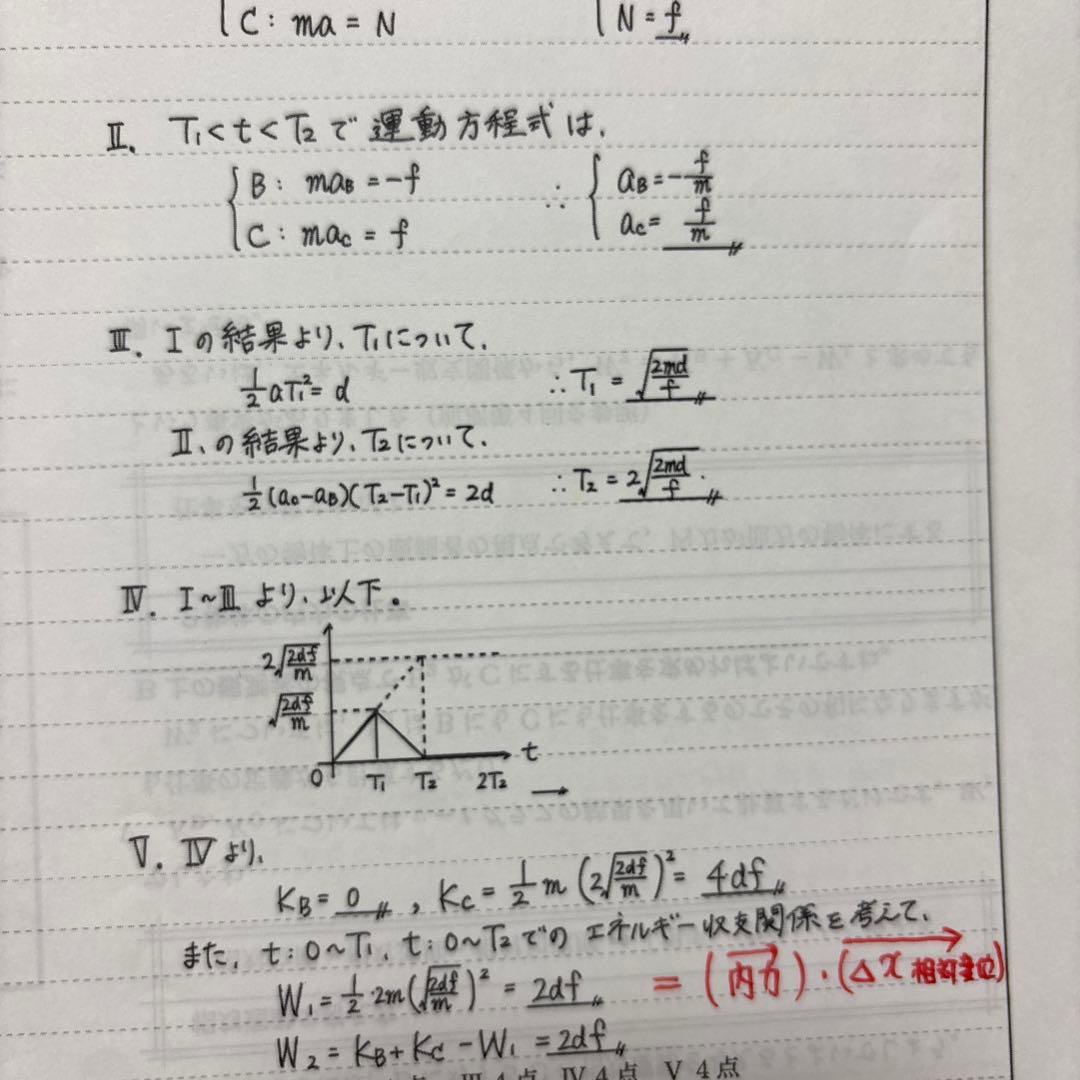 C: ma = N N = f
Ⅱ. T₁<t<T₂で運動方程式は、
B: ma_B = -f ∴ a_B = -f/m
C: ma_C = f a_C = f/m
Ⅲ. Ⅰの結果より、T₁について、
1/2 aT₁² = d ∴T₁ = √(2md/f)
Ⅱ、の結果より、T₂について、
1/2 (a_C-a_B)(T₂-T₁)² = 2d ∴T₂ = 2√(2md/f)
Ⅳ. Ⅰ~Ⅲより、以下。
2√(2df/m)
√(2df/m)
0 T₁ T₂ 2T₂ t
Ⅴ. Ⅳより、
K_B = 0 , K_C = 1/2 m (2√(2df/m))² = 4df
また、t:0~T₁、t:0~T₂でのエネルギー収支関係を考えて、
W₁ = 1/2・2m(√(2df/m))² = 2df = (内力)・(Δx 相対変位)
W₂ = K_B + K_C - W₁ = 2df
点 Ⅲ 4点 Ⅳ 4点 Ⅴ 4点